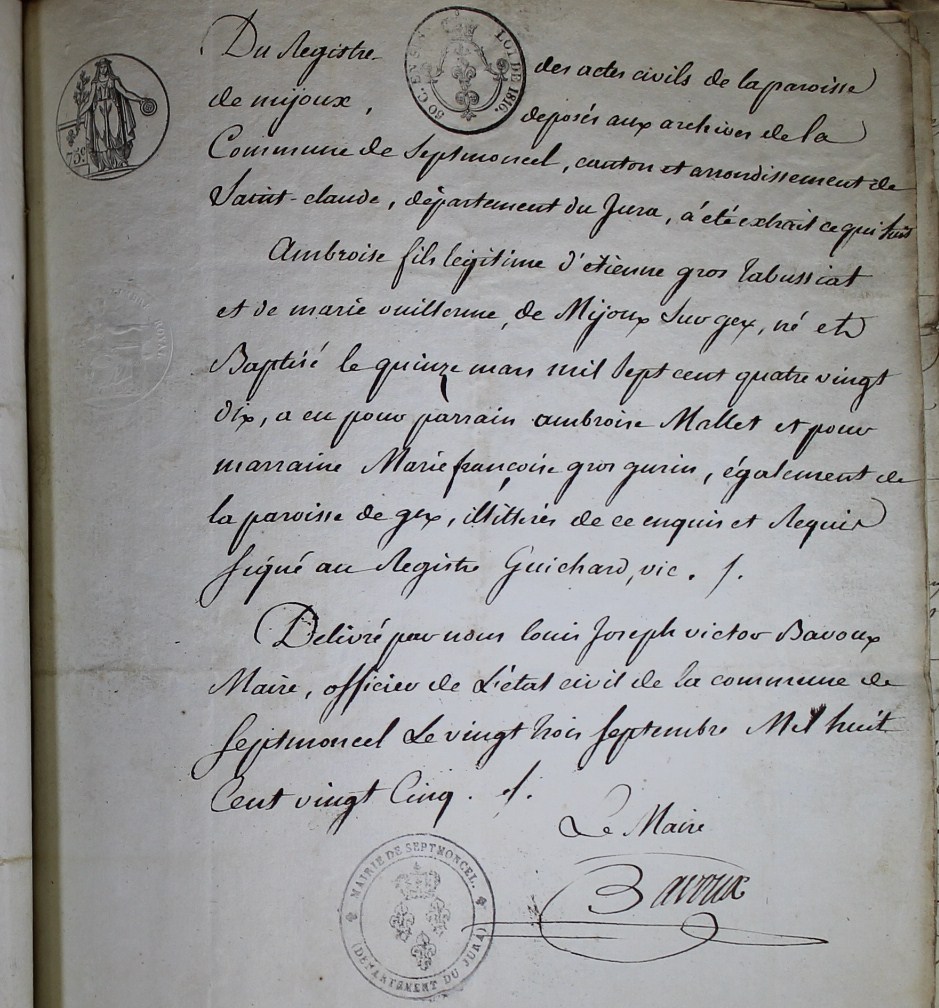 Du Registre des actes civils de la paroisse
de mijoux, deposés aux archives de la
Commune de Septmoncel, canton et arrondissement de
Saint-claude, département du Jura, a été extrait ce qui suit
Ambroise fils légitime d'etienne gros tabussiat
et de marie vuillerme, de Mijoux Sur gex, né et
Baptisé le quinze mars mil Sept cent quatre vingt
dix, a eu pour parrain ambroise Mallet et pour
marraine Marie françoise gros gurin, également de
la paroisse de gex, illittérés de ce enquis et Requis
signé au Registre Guichard, vic. /.
Delivré par nous louis Joseph victor Bavoux
Maire, officier de L'état civil de la commune de
Septmoncel Le vingt trois septembre Mil huit
Cent vingt Cinq. /.
Le Maire
Bavoux
LOI DE 1816.
75c
MAIRIE DE SEPTMONCEL.
(DÉPARTEMENT DU JURA)